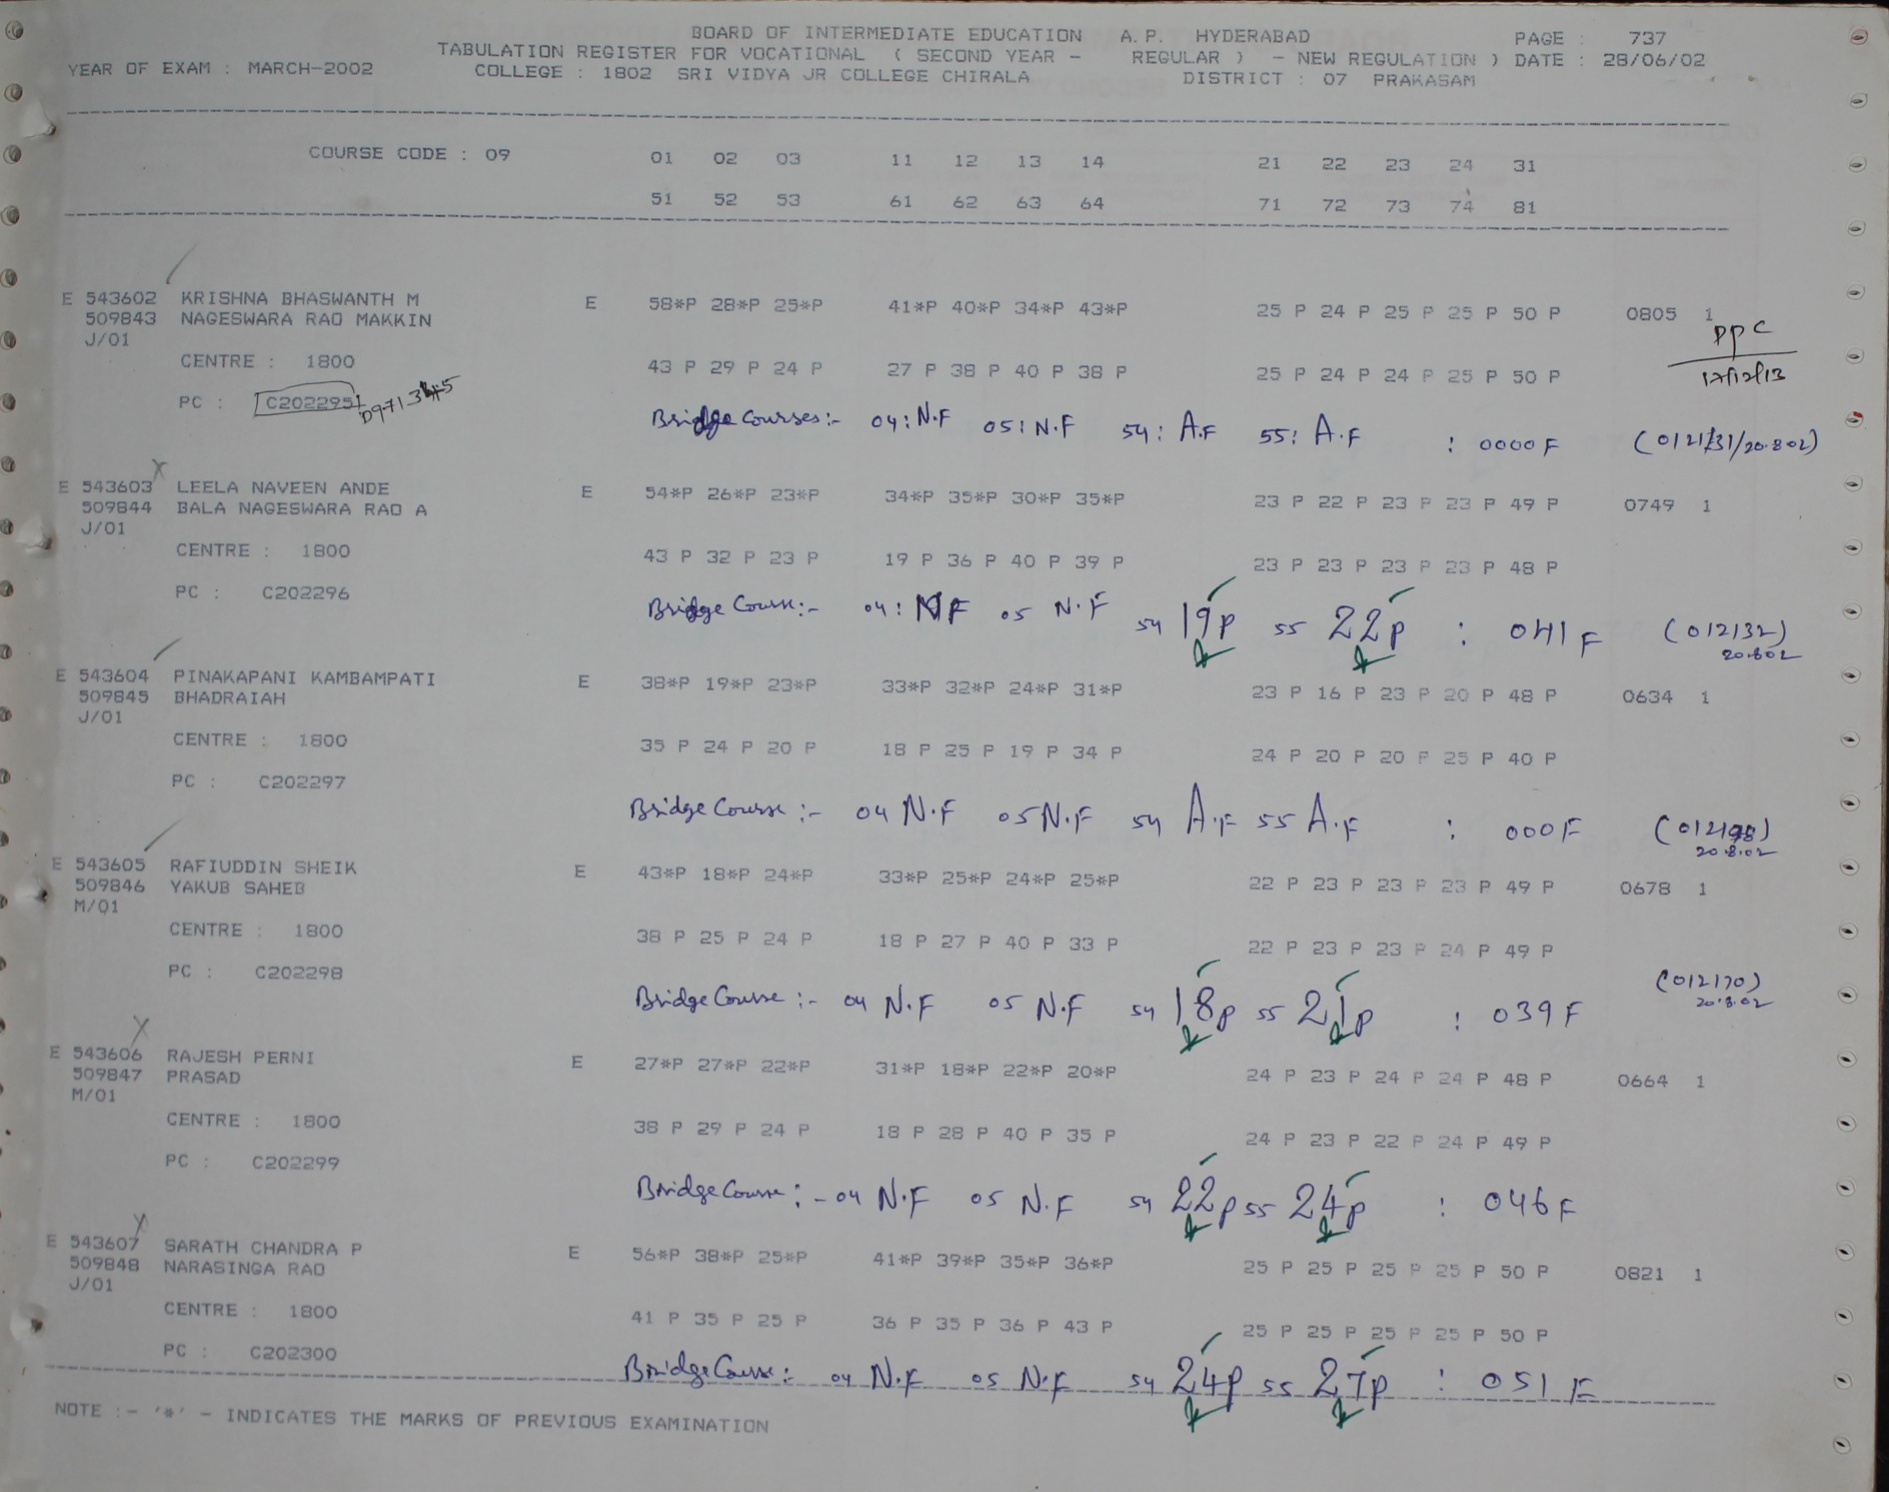 BOARD OF INTERMEDIATE EDUCATION A.P. HYDERABAD PAGE : 737
TABULATION REGISTER FOR VOCATIONAL ( SECOND YEAR - REGULAR ) - NEW REGULATION ) DATE : 28/06/02
YEAR OF EXAM : MARCH-2002 COLLEGE : 1802 SRI VIDYA JR COLLEGE CHIRALA DISTRICT : 07 PRAKASAM
COURSE CODE : 09 01 02 03 11 12 13 14 21 22 23 24 31
51 52 53 61 62 63 64 71 72 73 74 81
E 543602 KRISHNA BHASWANTH M E 58*P 28*P 25*P 41*P 40*P 34*P 43*P 25 P 24 P 25 P 25 P 50 P 0805 1
509843 NAGESWARA RAO MAKKIN
J/01
PPC
12/12/13
CENTRE : 1800 43 P 29 P 24 P 27 P 38 P 40 P 38 P 25 P 24 P 24 P 25 P 50 P
PC : C202295
Bridge Courses:- 04: N.F 05: N.F 54: A.F 55: A.F : 0000F
E 543603 LEELA NAVEEN ANDE E 54*P 26*P 23*P 34*P 35*P 30*P 35*P 23 P 22 P 23 P 23 P 49 P 0749 1
509844 BALA NAGESWARA RAO A
J/01
CENTRE : 1800 43 P 32 P 23 P 19 P 36 P 40 P 39 P 23 P 23 P 23 P 23 P 48 P
PC : C202296
Bridge Course:- 04: NF 05 N.F 54 19P 55 22P : 041F (012132)
20.8.02
E 543604 PINAKAPANI KAMBAMPATI E 38*P 19*P 23*P 33*P 32*P 24*P 31*P 23 P 16 P 23 P 20 P 48 P 0634 1
509845 BHADRAIAH
J/01
CENTRE : 1800 35 P 24 P 20 P 18 P 25 P 19 P 34 P 24 P 20 P 20 P 25 P 40 P
PC : C202297
Bridge Course :- 04 N.F 05 N.F 54 A.F 55 A.F : 000F
20.8.02
E 543605 RAFIUDDIN SHEIK E 43*P 18*P 24*P 33*P 25*P 24*P 25*P 22 P 23 P 23 P 23 P 49 P 0678 1
509846 YAKUB SAHEB
M/01
CENTRE : 1800 38 P 25 P 24 P 18 P 27 P 40 P 33 P 22 P 23 P 23 P 24 P 49 P
PC : C202298
(012170)
20.8.02
Bridge Course :- 04 N.F 05 N.F 54 18P 55 21P : 039F
E 543606 RAJESH PERNI E 27*P 27*P 22*P 31*P 18*P 22*P 20*P 24 P 23 P 24 P 24 P 48 P 0664 1
509847 PRASAD
M/01
CENTRE : 1800 38 P 29 P 24 P 18 P 28 P 40 P 35 P 24 P 23 P 22 P 24 P 49 P
PC : C202299
Bridge Course :- 04 N.F 05 N.F 54 22P 55 24P : 046F
E 543607 SARATH CHANDRA P E 56*P 38*P 25*P 41*P 39*P 35*P 36*P 25 P 25 P 25 P 25 P 50 P 0821 1
509848 NARASINGA RAO
J/01
CENTRE : 1800 41 P 35 P 25 P 36 P 35 P 36 P 43 P 25 P 25 P 25 P 25 P 50 P
PC : C202300
Bridge Course :- 04 N.F 05 N.F 54 24P 55 27P : 051F
NOTE :- '*' - INDICATES THE MARKS OF PREVIOUS EXAMINATION